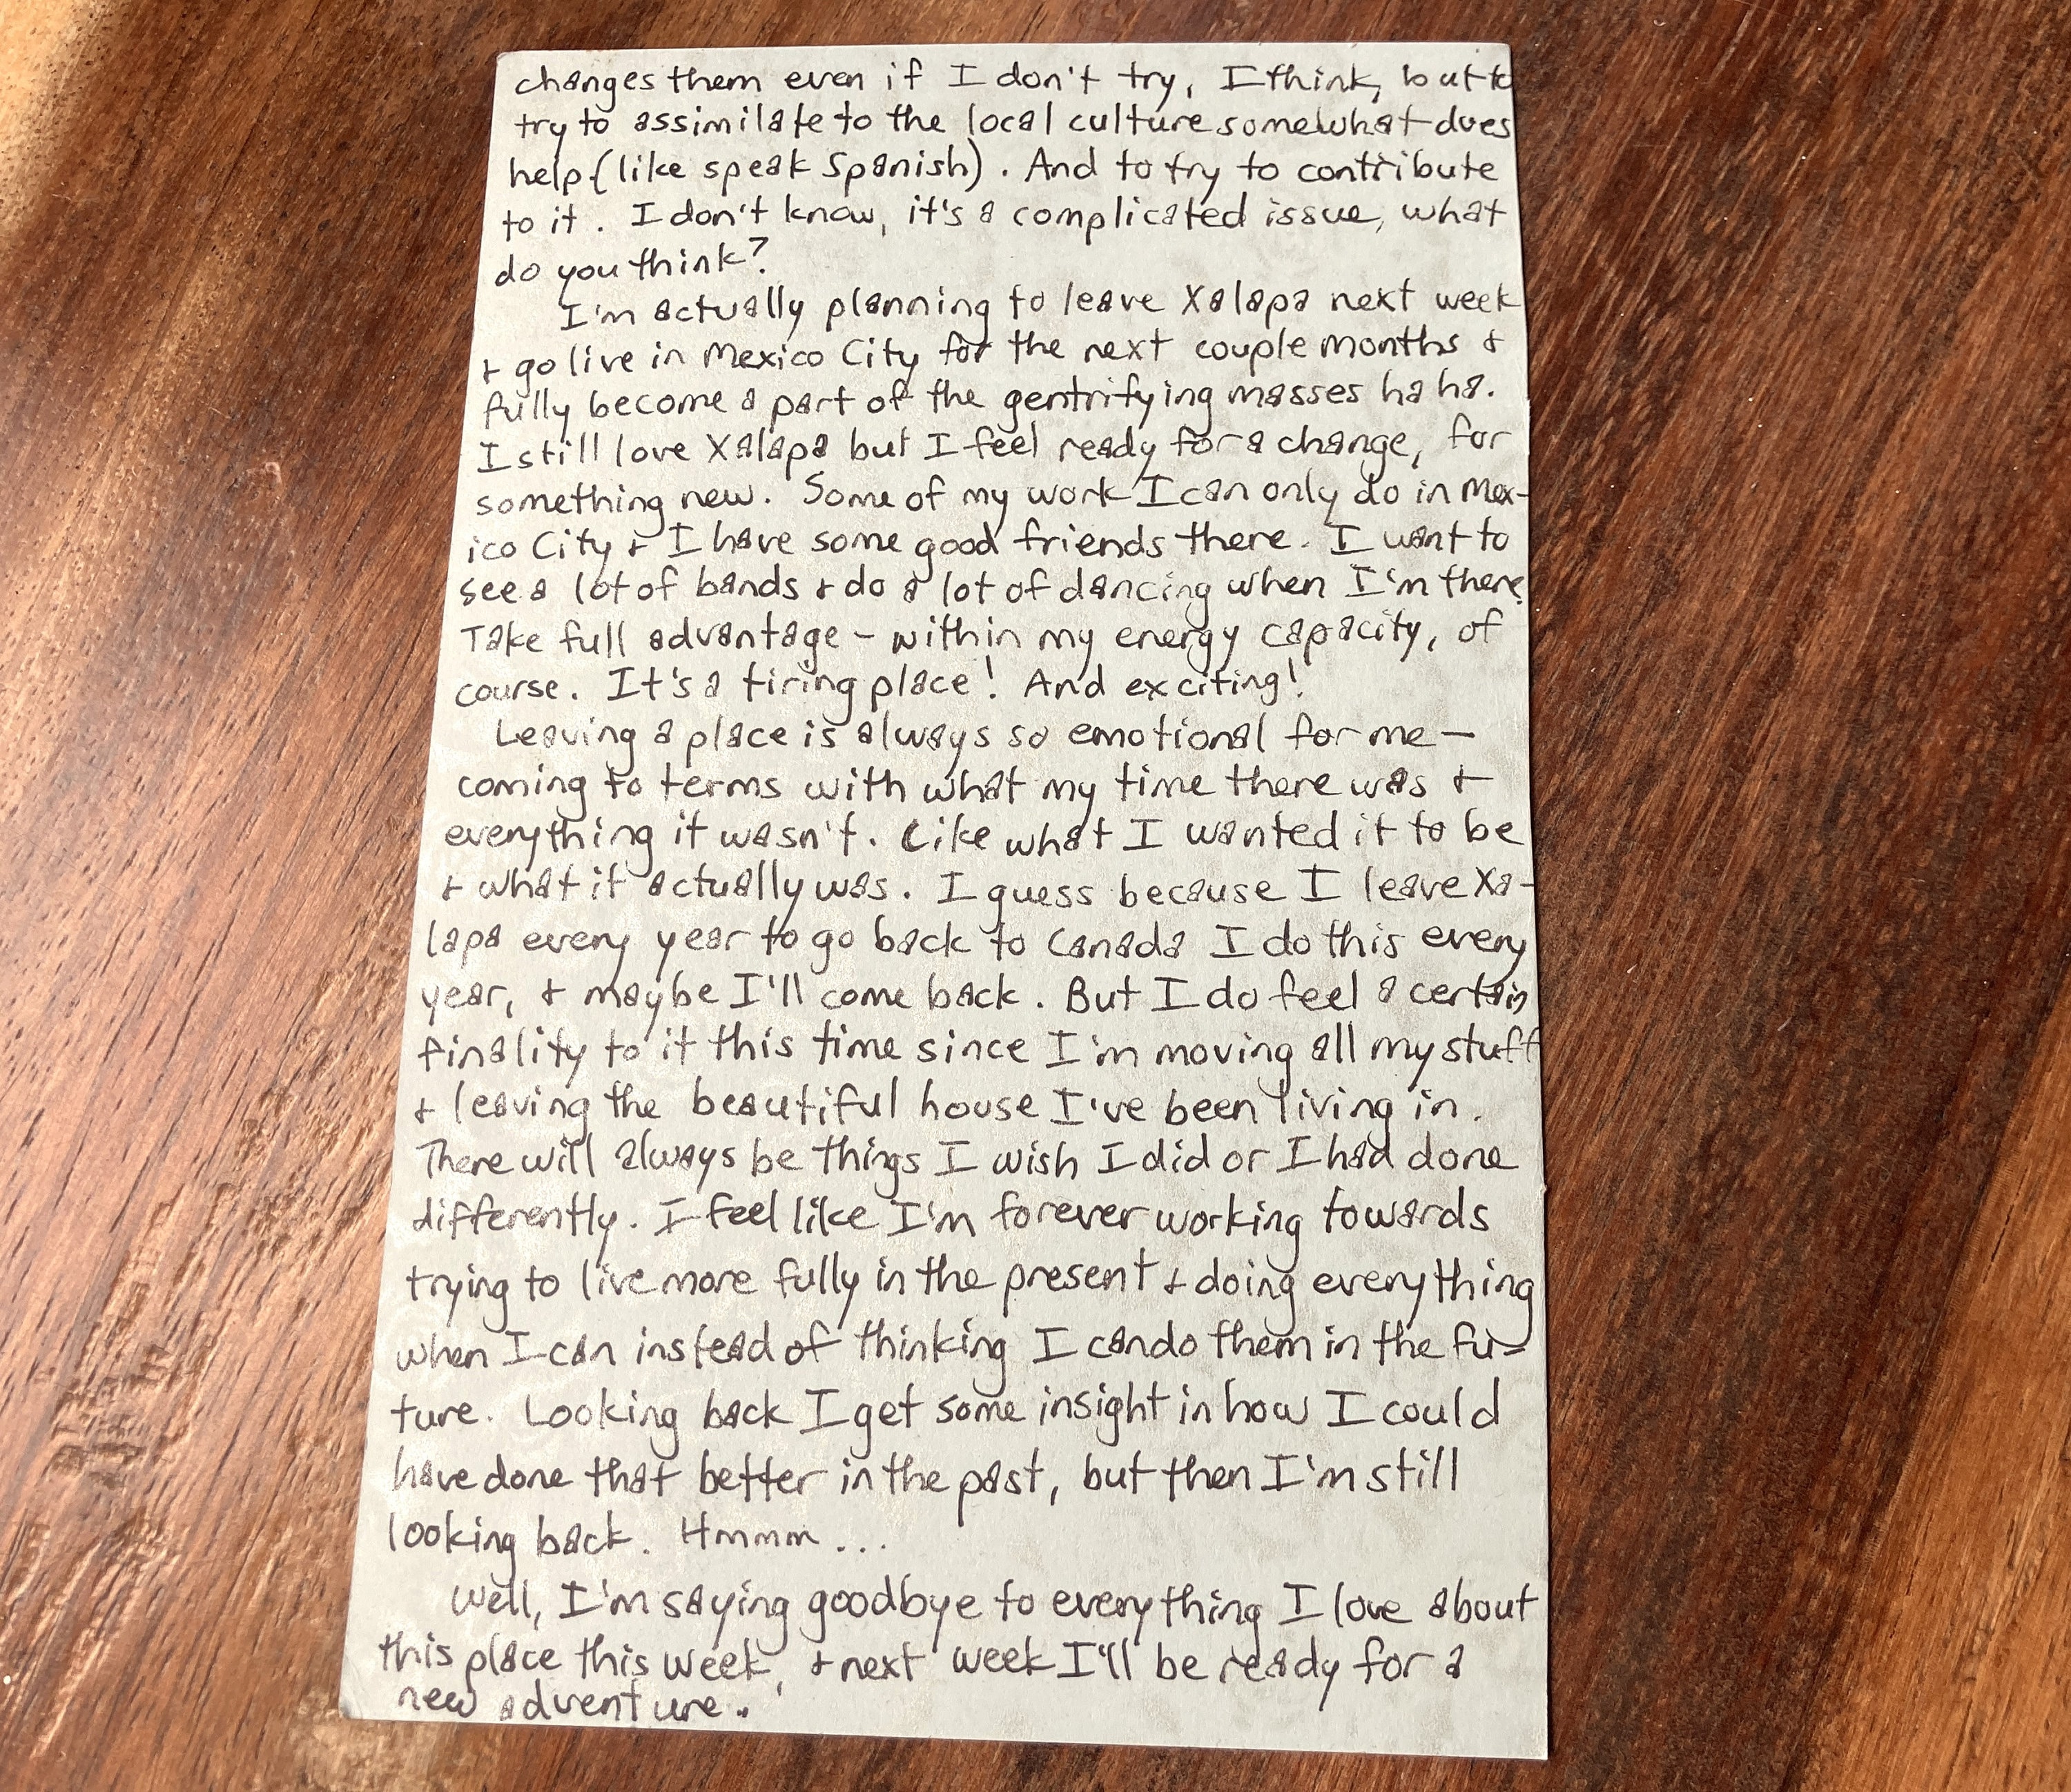 changes them even if I don't try, I think, but to
try to assimilate to the local culture somewhat does
help (like speak Spanish). And to try to contribute
to it. I don't know, it's a complicated issue, what
do you think?
I'm actually planning to leave Xalapa next week
+ go live in Mexico City for the next couple months +
fully become a part of the gentrifying masses ha ha.
I still love Xalapa but I feel ready for a change, for
something new. Some of my work I can only do in Mex-
ico City + I have some good friends there. I want to
see a lot of bands + do a lot of dancing when I'm there.
Take full advantage - within my energy capacity, of
course. It's a tiring place! And exciting!
Leaving a place is always so emotional for me -
coming to terms with what my time there was +
everything it wasn't. Like what I wanted it to be
+ what it actually was. I guess because I leave Xa-
lapa every year to go back to Canada I do this every
year, + maybe I'll come back. But I do feel a certain
finality to it this time since I'm moving all my stuff
+ leaving the beautiful house I've been living in.
There will always be things I wish I did or I had done
differently. I feel like I'm forever working towards
trying to live more fully in the present + doing everything
when I can instead of thinking I can do them in the fu-
ture. Looking back I get some insight in how I could
have done that better in the past, but then I'm still
looking back. Hmmm...
Well, I'm saying goodbye to everything I love about
this place this week, + next week I'll be ready for a
new adventure.